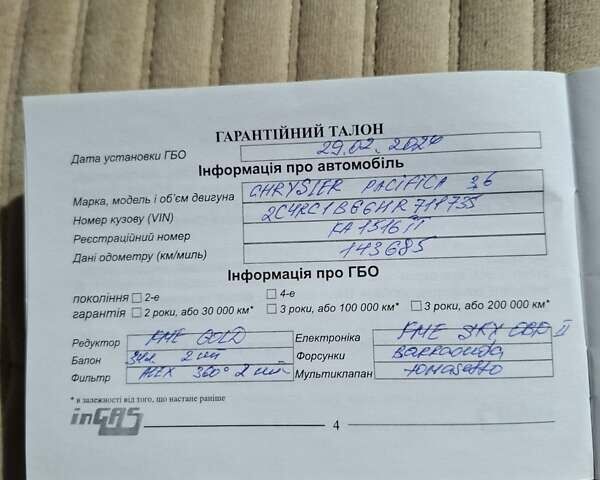 ГАРАНТІЙНИЙ ТАЛОН
Дата установки ГБО 29.02.2024
Інформація про автомобіль
Марка, модель і об'єм двигуна CHRYSLER PACIFICA 3,6
Номер кузову (VIN) 2C4RC1BGGHR711735
Реєстраційний номер KA1516IT
Дані одометру (км/миль) 143685
Інформація про ГБО
покоління 2-е 4-е
гарантія 2 роки, або 30 000 км* 3 роки, або 100 000 км* 3 роки, або 200 000 км*
Редуктор KME GOLD Електроніка KME OBD II
Балон 34л 2шт Форсунки Barracuda
Фильтр ALEX 360° 2шт Мультиклапан TOMASETTO
* в залежності від того, що настане раніше
inGAS
4